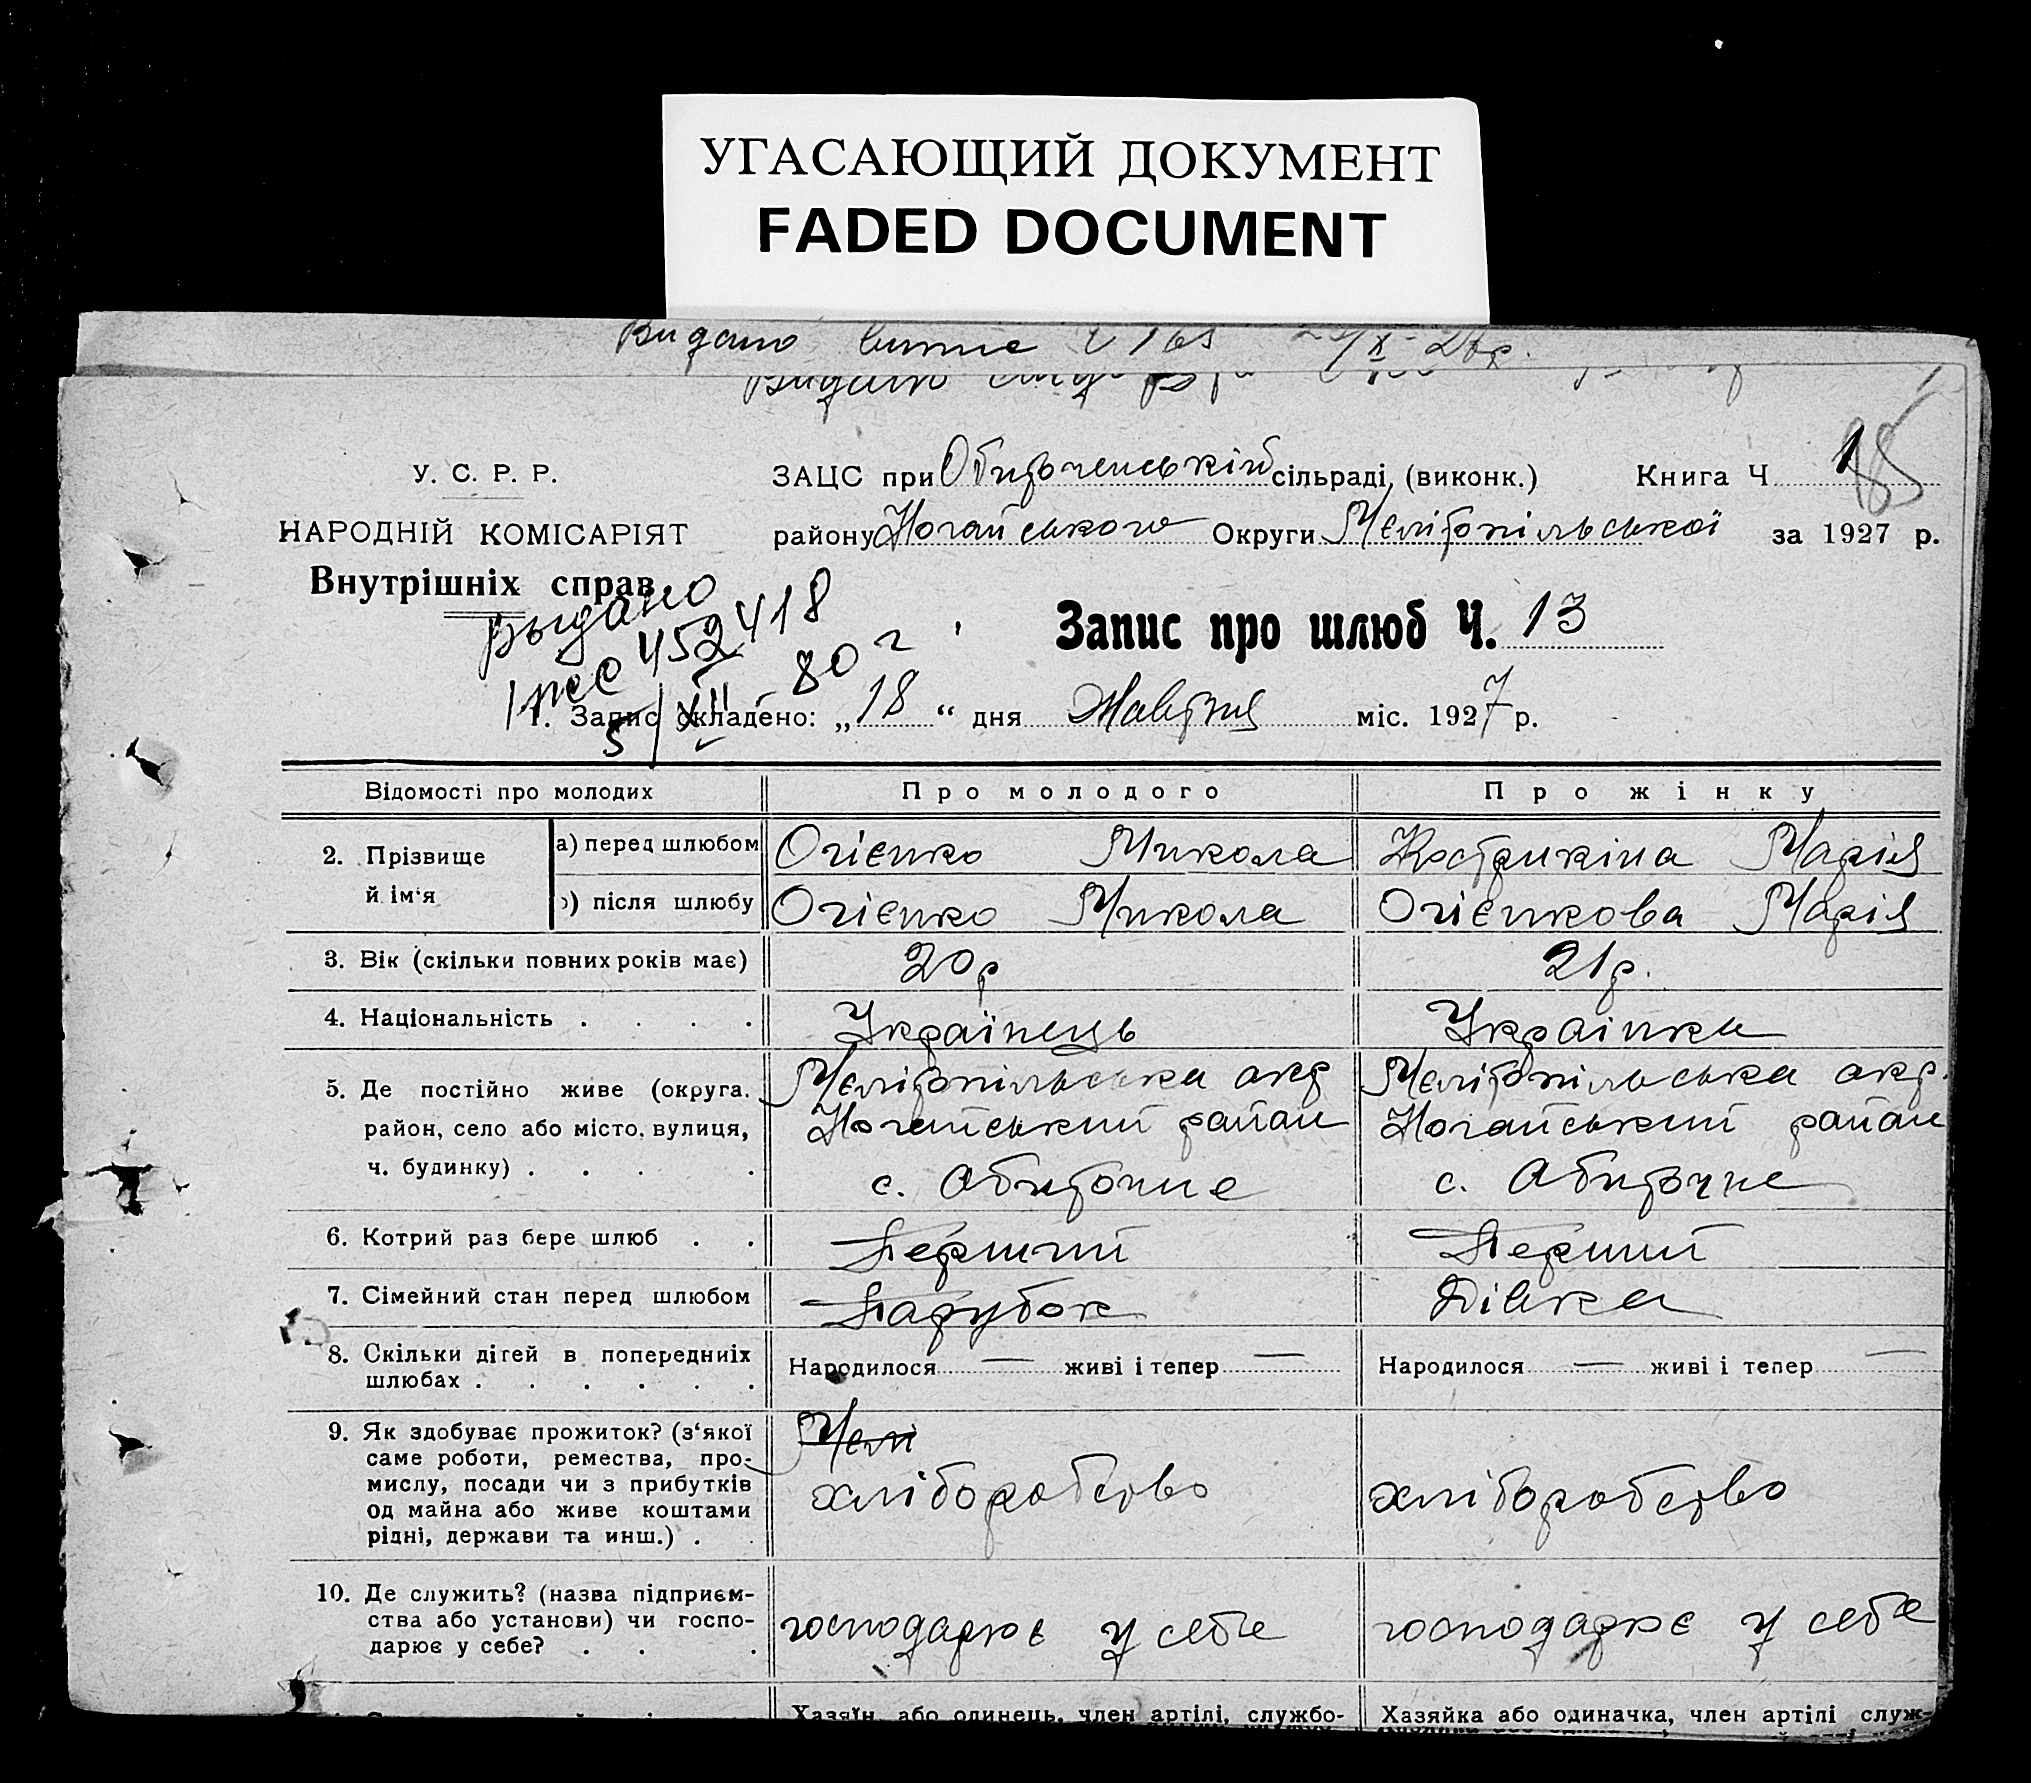 УГАСАЮЩИЙ ДОКУМЕНТ
FADED DOCUMENT
Видано
Видано
У. С. Р. Р.
ЗАЦС при Обиточенській сільраді, (виконк.) Книга Ч 1
185
НАРОДНІЙ КОМІСАРІЯТ
району Ногайського Округи Мелітопільської за 1927 р.
Внутрішніх справ
Выдано
452418
5/XII 80 г
Запис про шлюб Ч. 13
1. Запис складено: „18“ дня Жавтня міс. 1927 р.
Відомості про молодих Про молодого Про жінку
2. Прізвище й ім'я
а) перед шлюбом Огієнко Микола Кострикіна Марія
б) після шлюбу Огієнко Микола Огієнкова Марія
3. Вік (скільки повних років має) 20 р 21 р.
4. Національність . . . . Українець Українка
5. Де постійно живе (округа, район, село або місто, вулиця, ч. будинку) . . . .
Мелітопільська окр Мелітопільська окр.
Ногайський район Ногайський район
с. Обиточне с. Обиточне
6. Котрий раз бере шлюб . . Перший Перший
7. Сімейний стан перед шлюбом Парубок Дівка
8. Скільки дітей в попередніїх шлюбах . . . . . .
Народилося — живі і тепер — Народилося — живі і тепер —
9. Як здобуває прожиток? (з'якої
саме роботи, ремества, про-
мислу, посади чи з прибутків
од майна або живе коштами
рідні, держави та инш.) .
Мелі
хліборобство хліборобство
10. Де служить? (назва підприєм-
ства або установи) чи госпо-
дарює у себе? . . .
господарює у себе господарює у себе
Хазяїн, або одинець, член артілі, службо- Хазяйка або одиначка, член артілі служ-